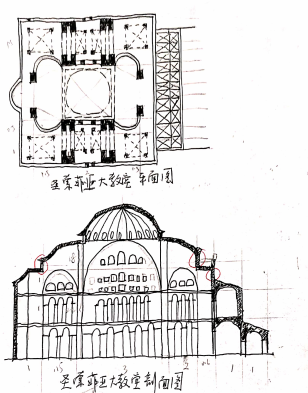 圣索菲亚大教堂平面图
圣索菲亚大教堂剖面图